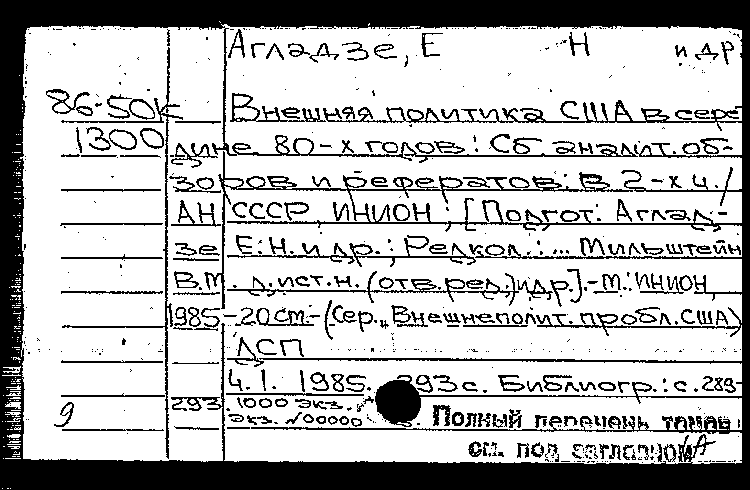 Агладзе, Е Н и др
86-50к Внешняя политика США в сере-
1300 дине 80-х годов: Сб. аналит. об-
зоров и рефератов: В 2-х ч. /
АН СССР, ИНИОН; [Подгот: Аглад-
зе Е.Н. и др.; Редкол.: ... Мильштейн
В.М. д.ист.н. (отв.ред.) и др.].-М.: ИНИОН,
1985-20 см.-(Сер. „Внешнеполит. пробл. США)
ДСП
Ч.1. 1985. 293 с. Библиогр.: с. 289-
293 1000 экз.
9 Экз. №00000 Полный перечень томов
см. под заглавном